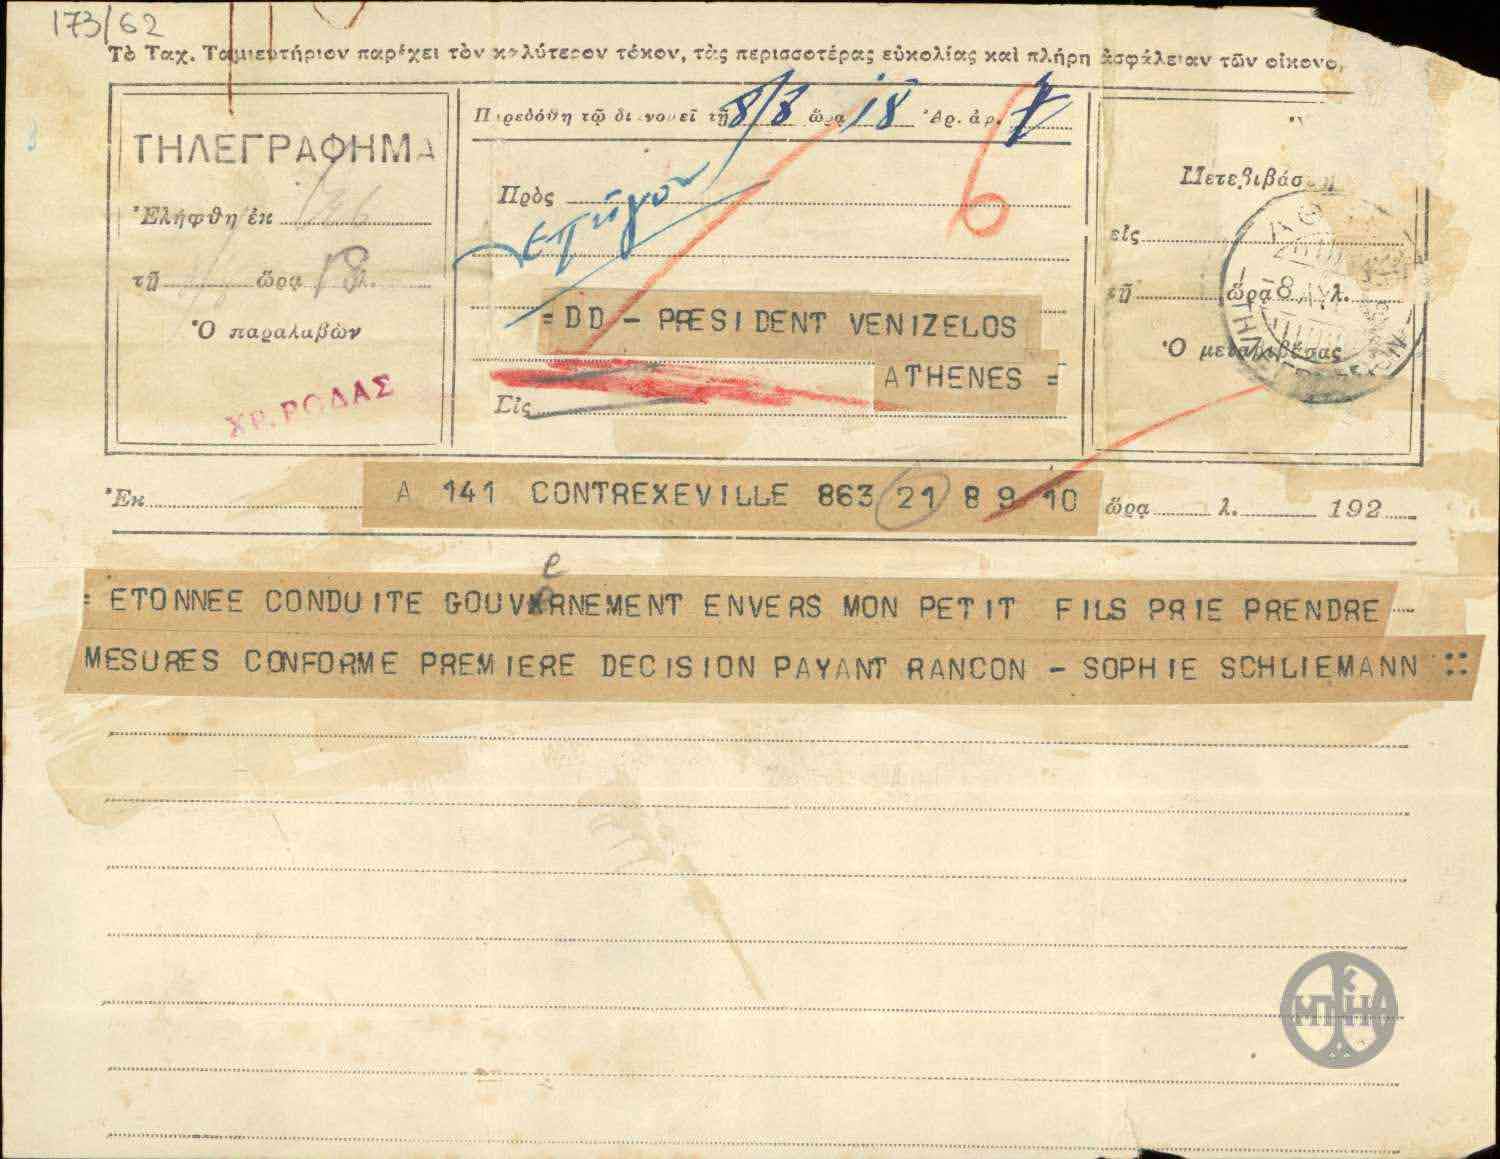 173/62
Τὸ Ταχ. Ταμιευτήριον παρέχει τὸν καλύτερον τόκον, τὰς περισσοτέρας εὐκολίας καὶ πλήρη ἀσφάλειαν τῶν οἰκονο
ΤΗΛΕΓΡΑΦΗΜΑ
Ἐλήφθη ἐκ
τῇ ὥρᾳ 18 λ.
Ὁ παραλαβὼν
ΧΡ. ΡΟΔΑΣ
Παρεδόθη τῷ διανομεῖ τῇ 8/8 ὥρᾳ 18 Ἀρ. ἀρ.
6
Πρὸς
=DD - PRESIDENT VENIZELOS
ATHENES =
Εἰς
Μετεβιβάσθη
εἰς
τῇ ὥρᾳ λ.
Ὁ μεταβιβάσας
ΑΘ
8 ΑΥΓ
Ἐκ A 141 CONTREXEVILLE 863 21 8 9 10 ὥρᾳ λ. 192
e
= ETONNEE CONDUITE GOUVERNEMENT ENVERS MON PETIT FILS PRIE PRENDRE
MESURES CONFORME PREMIERE DECISION PAYANT RANCON - SOPHIE SCHLIEMANN ::
ΜΠ Κ Η